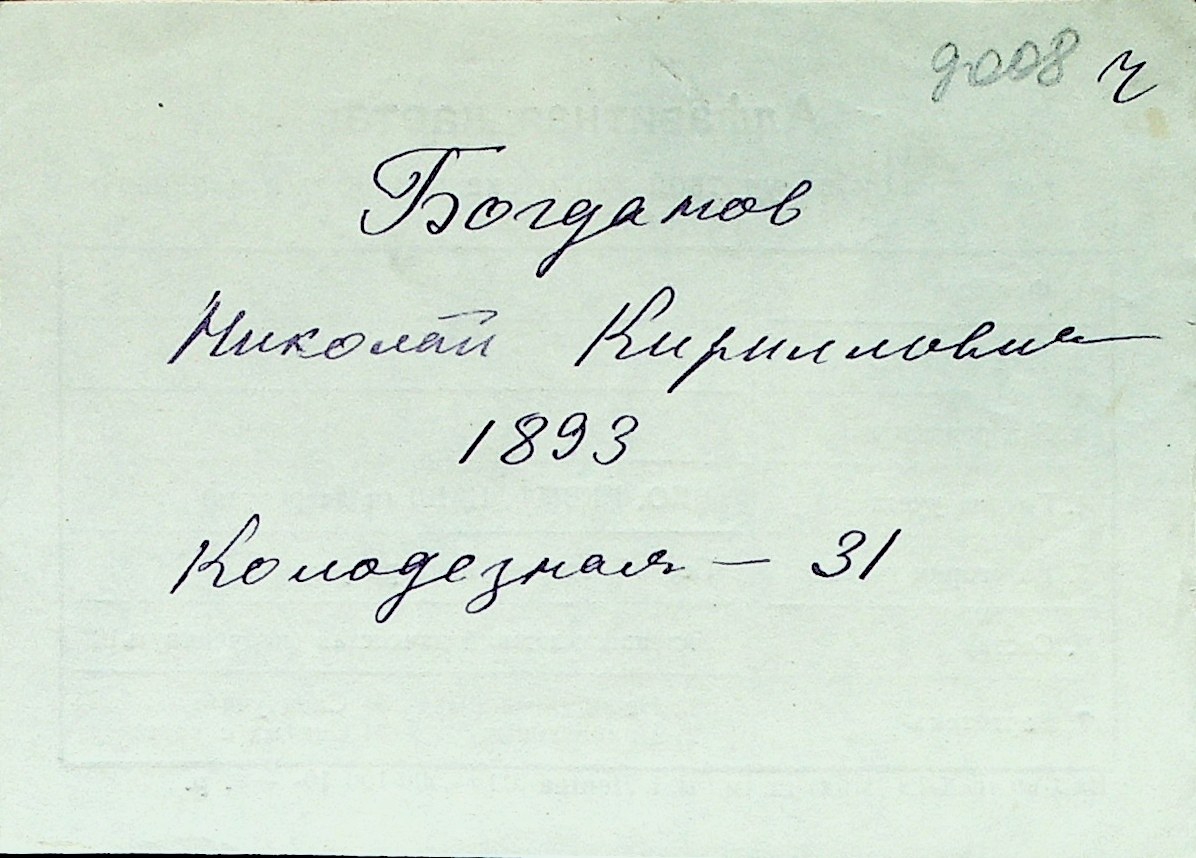 9008 ч
Богданов
Николай Кириллович
1893
Колодезная – 31